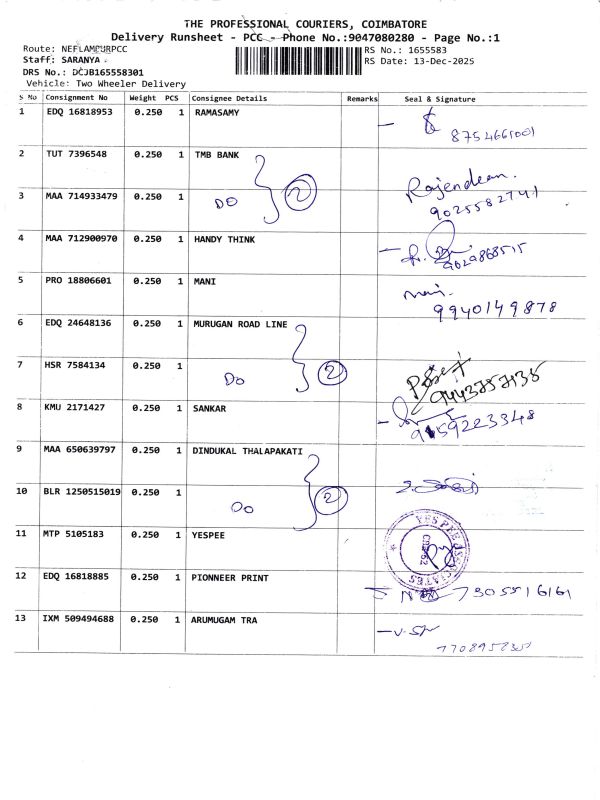 THE PROFESSIONAL COURIERS, COIMBATORE
Delivery Runsheet - PCC - Phone No.:9047080280 - Page No.:1
Route: NEELAMPURPCC
RS No.: 1655583
Staff: SARANYA
RS Date: 13-Dec-2025
DRS No.: DCJB165558301
Vehicle: Two Wheeler Delivery
S No Consignment No Weight PCS Consignee Details Remarks Seal & Signature
1 EDQ 16818953 0.250 1 RAMASAMY
8754661001
2 TUT 7396548 0.250 1 TMB BANK
Rajendran.
3 MAA 714933479 0.250 1 DO 2
9025582741
4 MAA 712900970 0.250 1 HANDY THINK
9629868515
5 PRO 18806601 0.250 1 MANI
mani.
9940149878
6 EDQ 24648136 0.250 1 MURUGAN ROAD LINE
7 HSR 7584134 0.250 1 Do 2
9443757135
8 KMU 2171427 0.250 1 SANKAR
9159223348
9 MAA 650639797 0.250 1 DINDUKAL THALAPAKATI
10 BLR 1250515019 0.250 1 Do 2
11 MTP 5105183 0.250 1 YESPEE
YESPEE ASSOCIATES
12 EDQ 16818885 0.250 1 PIONNEER PRINT
7305516161
13 IXM 509494688 0.250 1 ARUMUGAM TRA